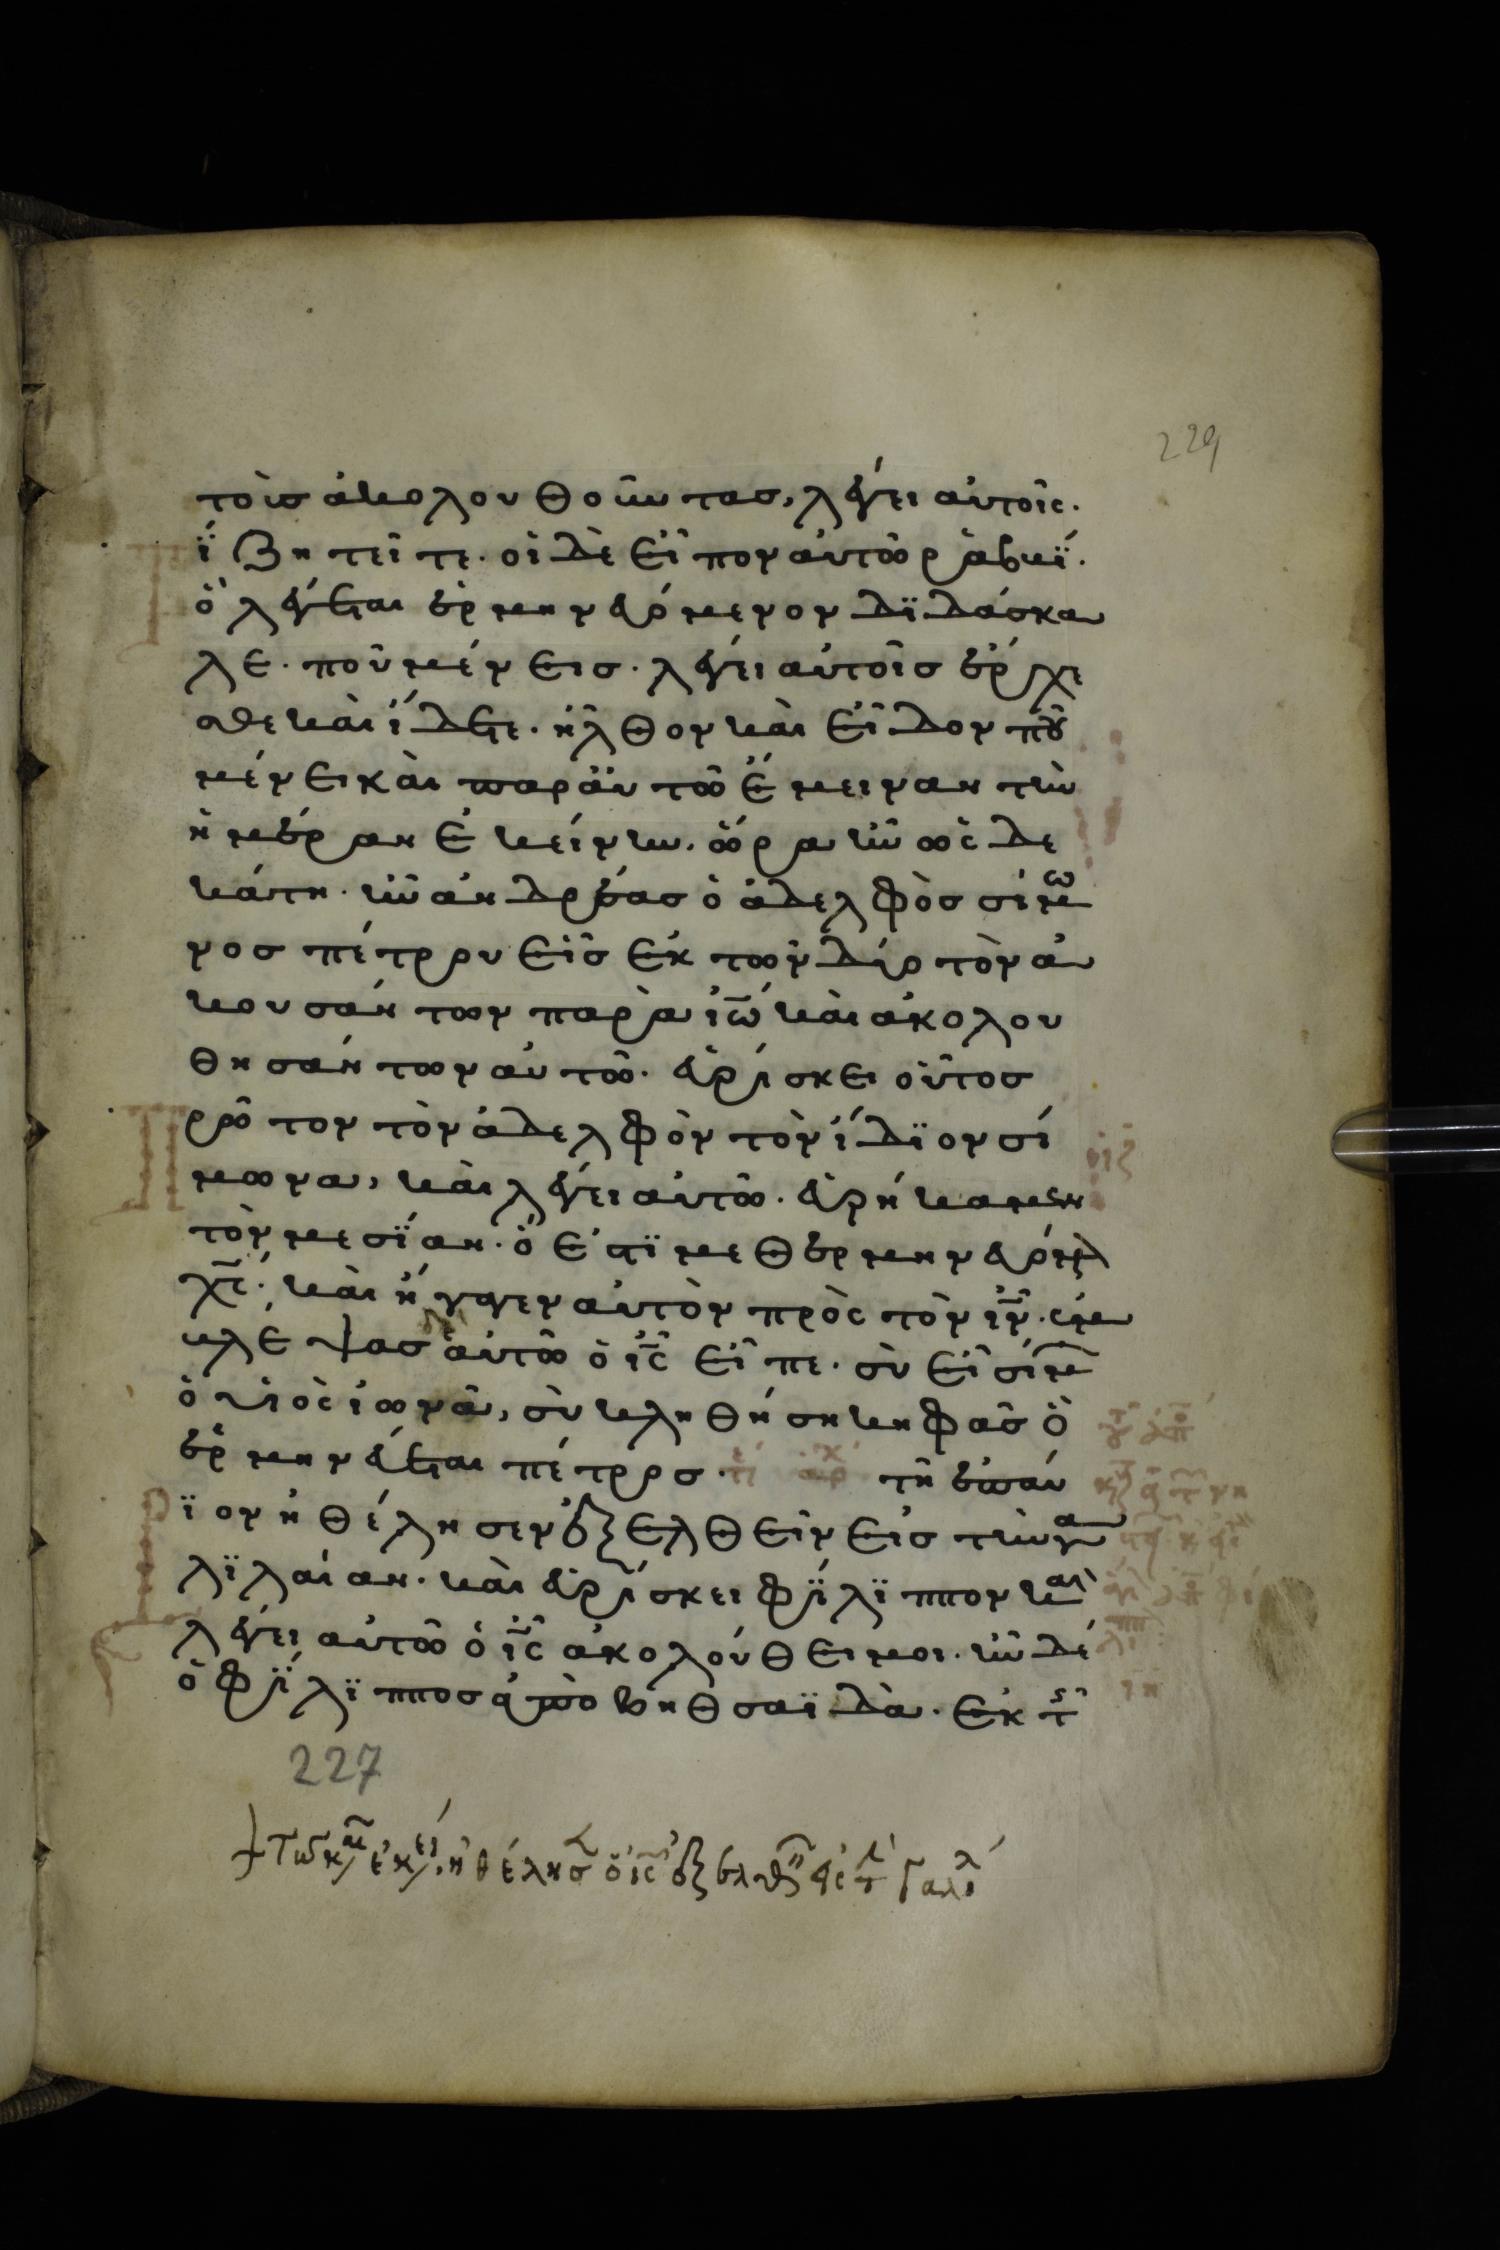 229
τοὺσ ἀκολουθοῦντασ, λέγει αὐτοῖς.
τί ζητεῖτε. οἱ δὲ εἶπον αὐτῶ ραββί.
ὃ λέγεται ἑρμηνευόμενον διδάσκα
λε. ποῦ μένεισ. λέγει αὐτοῖσ ἔρχε
σθε καὶ ἴδετε. ἦλθον καὶ εἶδον ποῦ
μένει καὶ παρ αὐτῶ ἔμειναν τὴν
ἡμέραν ἐκείνην. ὥρα ἦν ὡς δε
κάτη. ἦν ἀνδρέασ ὁ ἀδελφὸσ σίμω
νοσ πέτρου εἷσ ἐκ τῶν δύο τὸν ἀ
κουσάντων παρὰ ἰω καὶ ἀκολου
θησάντων αὐτῶ. εὑρίσκει οὗτοσ
πρῶτον τὸν ἀδελφὸν τὸν ἴδϊον σί
μωνα, καὶ λέγει αὐτῶ. εὑρήκαμεν
τὸν μεσίαν. ὅ ἐστϊ μεθερμηνευόμε
χς. καὶ ἤγαγεν αὐτὸν πρὸς τὸν ιν. ἐμ
βλέψασ αὐτῶ ὁ ις εἶπε. σὺ εἶ σίμ
ὁ υἱὸς ἰωνᾶ, σὺ κληθήση κηφᾶσ ὃ
ἑρμηνεύεται πέτροσ. τέ ἀρχ τῆ ἐπαύ
ρϊον ἠθέλησεν ἐξελθεῖν εἰσ τὴν γα
λϊλαίαν. καὶ εὑρίσκει φίλϊππον καὶ
λέγει αὐτῶ ὁ ις ἀκολούθει μοι. ἦν δὲ
ὁ φίλϊπποσ ἀπὸ βηθσαϊδὰ. ἐκ τ
227
τῶ κ ἐκ, ἠθέλησ ὁ ις ἐξελθ εἰς τ Γαλι